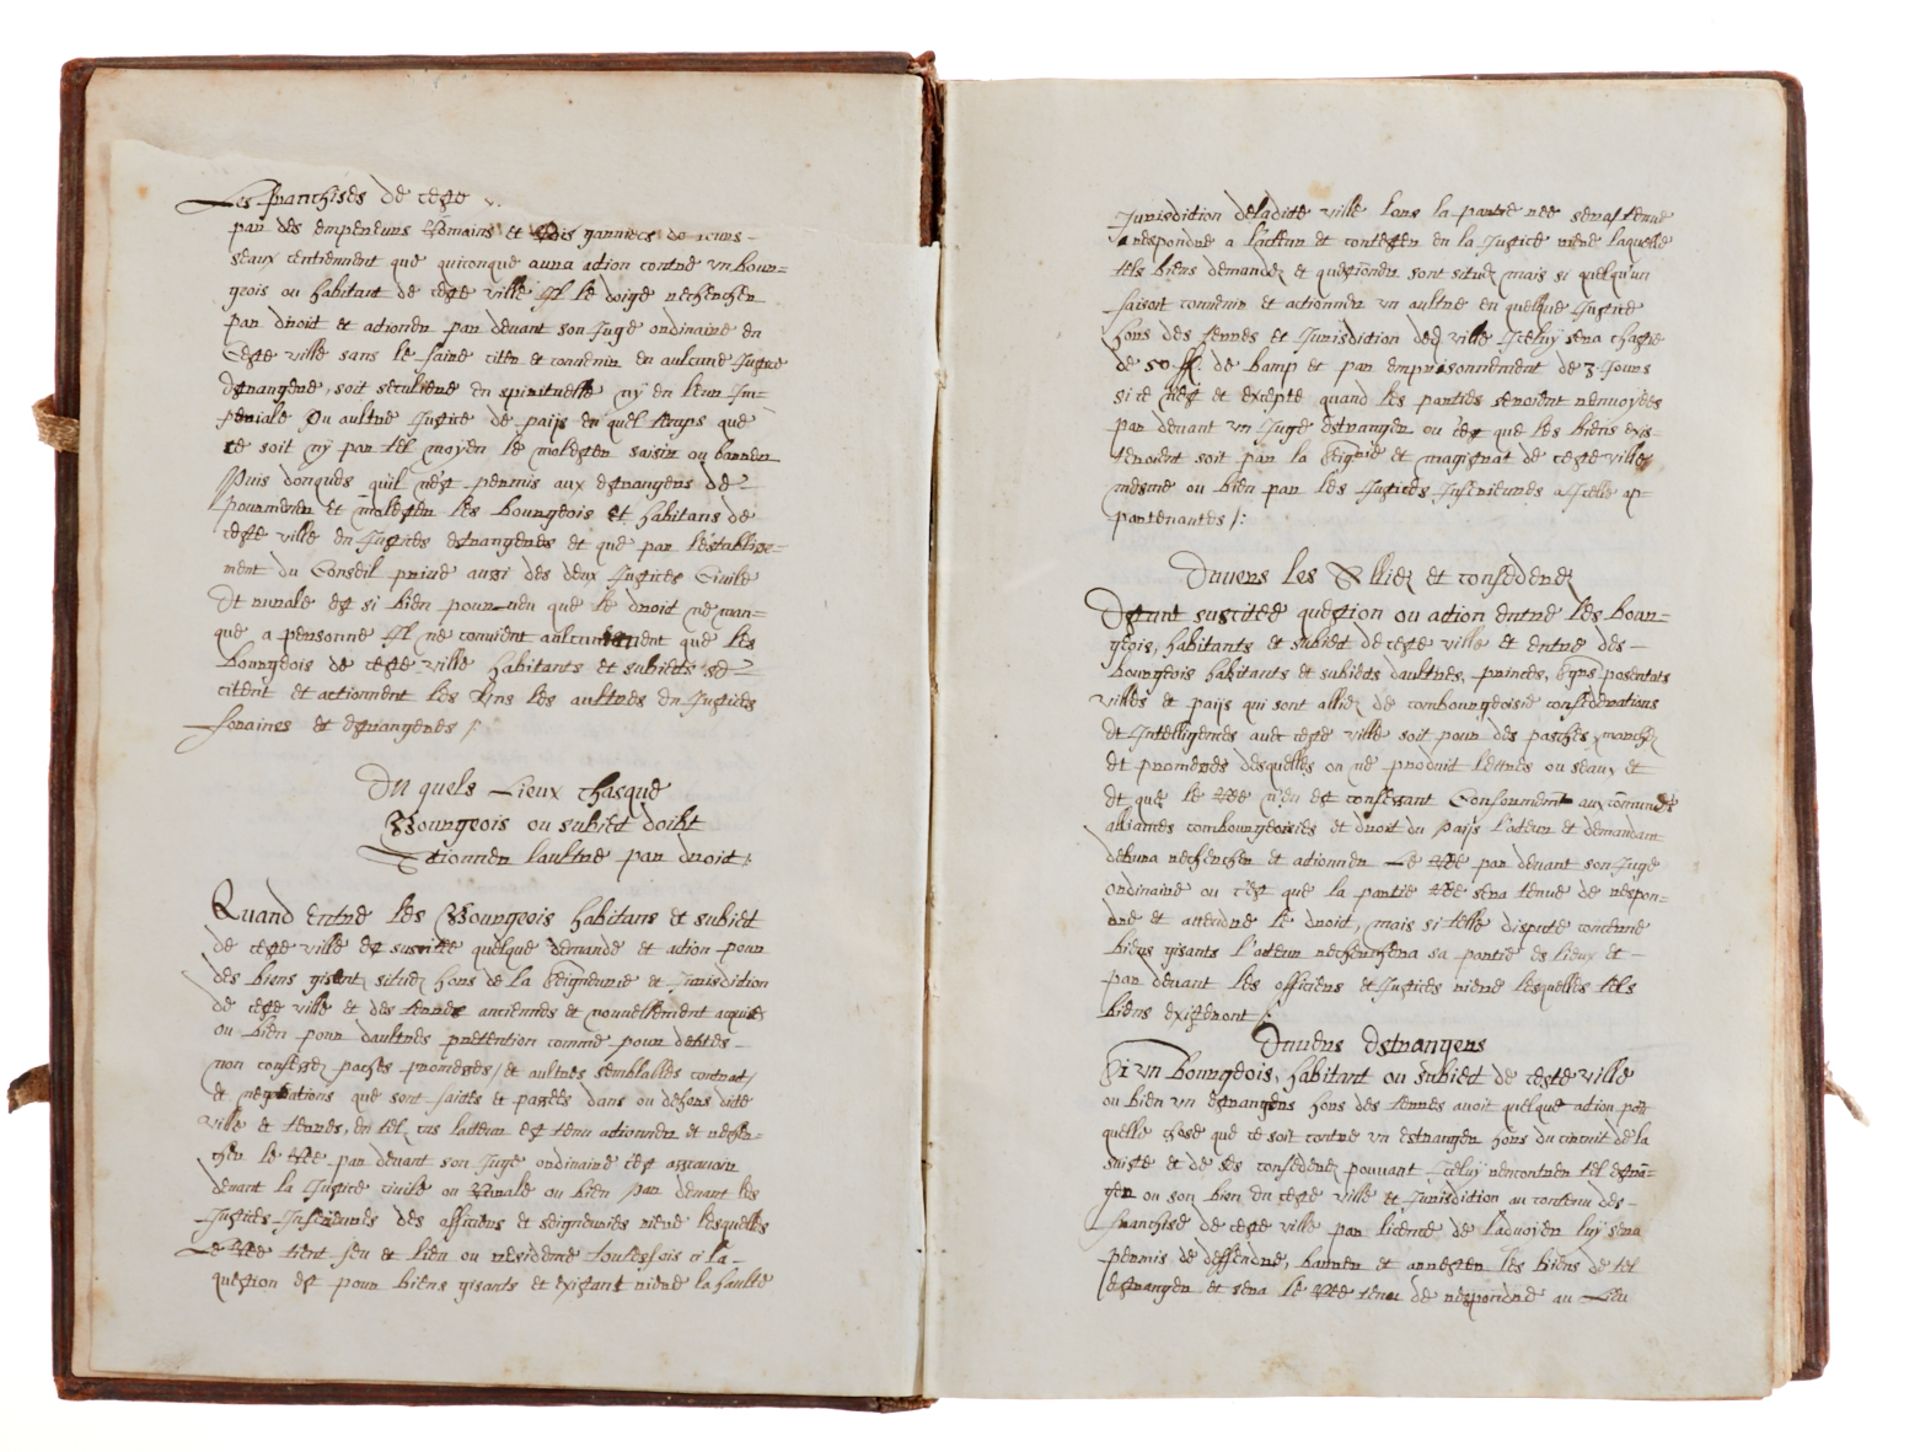 Les franchises de ceste v.
par des empereurs Romains et Rois garniees de leurs
seaux contiennent que quiconque aura action contre un bour=
geois ou habitant de ceste ville Il le doige rechercher
par droit et actioner par devant son Juge ordinaire en
Ceste ville sans le faire citer et convenir en aulcune Justice
Estrangere, soit seculiere en spirituelle ny en leur Im=
periale Ou aultre Justice de paijs en quel temps que
ce soit ny par tel moyen le molester saisir ou barrer
Puis donques quil n'est permis aux estrangers de
pourmener et molester les bourgeois et habitans de
ceste ville en Justices estrangeres et que par l'establisse=
ment du Conseil privé aussi des deux Justices Civile
Et rurale est si bien pourveu que le droit ne man=
que a personne Il ne convient aulcunement que les
bourgeois de ceste ville habitants et subiects se
citent et actionnent les Uns les aultres En Justices
foraines et estrangeres /:
En quels Lieux chasque
Bourgeois ou subiect doibt
Actionner laultre par droit:
Quand Entre les Bourgeois habitans et subiect
de ceste ville est suscitée quelque demande et action pour
des biens gisent situez hors de la Seigneurie et Jurisdition
de ceste ville et des terres anciennes et nouvellement acquises
ou bien pour daultres pretention comme pour debtes
non confessez paches promesses / et aultres semblables contract /
et negotiations que sont faictes et passees dans ou dehors dite
Ville et terres, en tel cas lacteur est tenu actionner et recher=
cher le Ree par devant son Juge ordinaire cest assavoir
devant la Justice civile ou Rurale ou bien par devant les
Justices Inferieures des officiers et seigneuries riere lesquelles
Le Ree tient feu et lieu ou residence toutesfois si la
question est pour biens gisants et existant riere la haulte
Jurisdition de ladite ville lors la partie ree sera tenue
a respondre a l'acteur et contester en la Justice riere laquelle
tels biens demandez et questioner sont situez mais si quelqu'un
faisoit convenir et actionner un aultre en quelque Justice
hors des terres et Jurisdition ded. ville Iceluy sera chastié
de 50 ff. de bamp et par emprisonnement de 3. Jours
si ce n'est et excepte quand les parties seroient renvoyées
par devant un Juge estranger ou c'est que les biens exis=
teroient soit par la Seigrie et magistrat de ceste ville
mesme ou bien par les Justices Inferieures a Icelle ap=
partenantes /:
Envers les Alliez et confederez
Estant suscitée question ou action entre les bour=
geois, habitants et subiect de ceste ville et entre des
bourgeois habitants et subiects daultres, princes, Sgrs potentats
villes et paijs qui sont alliez de combourgeoisie confederations
Et Intelligences avec ceste ville soit pour des pasches, marchez
et promesses desquelles on ne produit lettres ou seaux et
et que le Ree n'en est confessant Conforment aux comunes
alliances combourgeoisies et droit du paijs l'acteur et demandant
debvra rechercher et actionner Le Ree par devant son Juge
ordinaire ou c'est que la partie Ree sera tenue de respon=
dre et attendre le droit, mais si telle dispute concerne
biens gisants l'acteur recherchera sa partie es lieux et
par devant les officiers et Justices riere lesquelles tels
biens existeront /:
Envers Estrangers
Si un bourgeois, habitant ou subiect de ceste ville
ou bien un estrangers hors des terres avoit quelque action pour
quelle chose que ce soit contre un estranger hors du circuit de la
suisse et de ses confederez pouvant Iceluy rencontrer tel estra=
ger ou son bien en ceste ville et Jurisdition au contenu des
franchise de ceste ville par licence de ladvoyer luy sera
permis de deffendre, barrer et arrester les biens de tel
estranger et sera le Ree tenu de respondre au Lieu